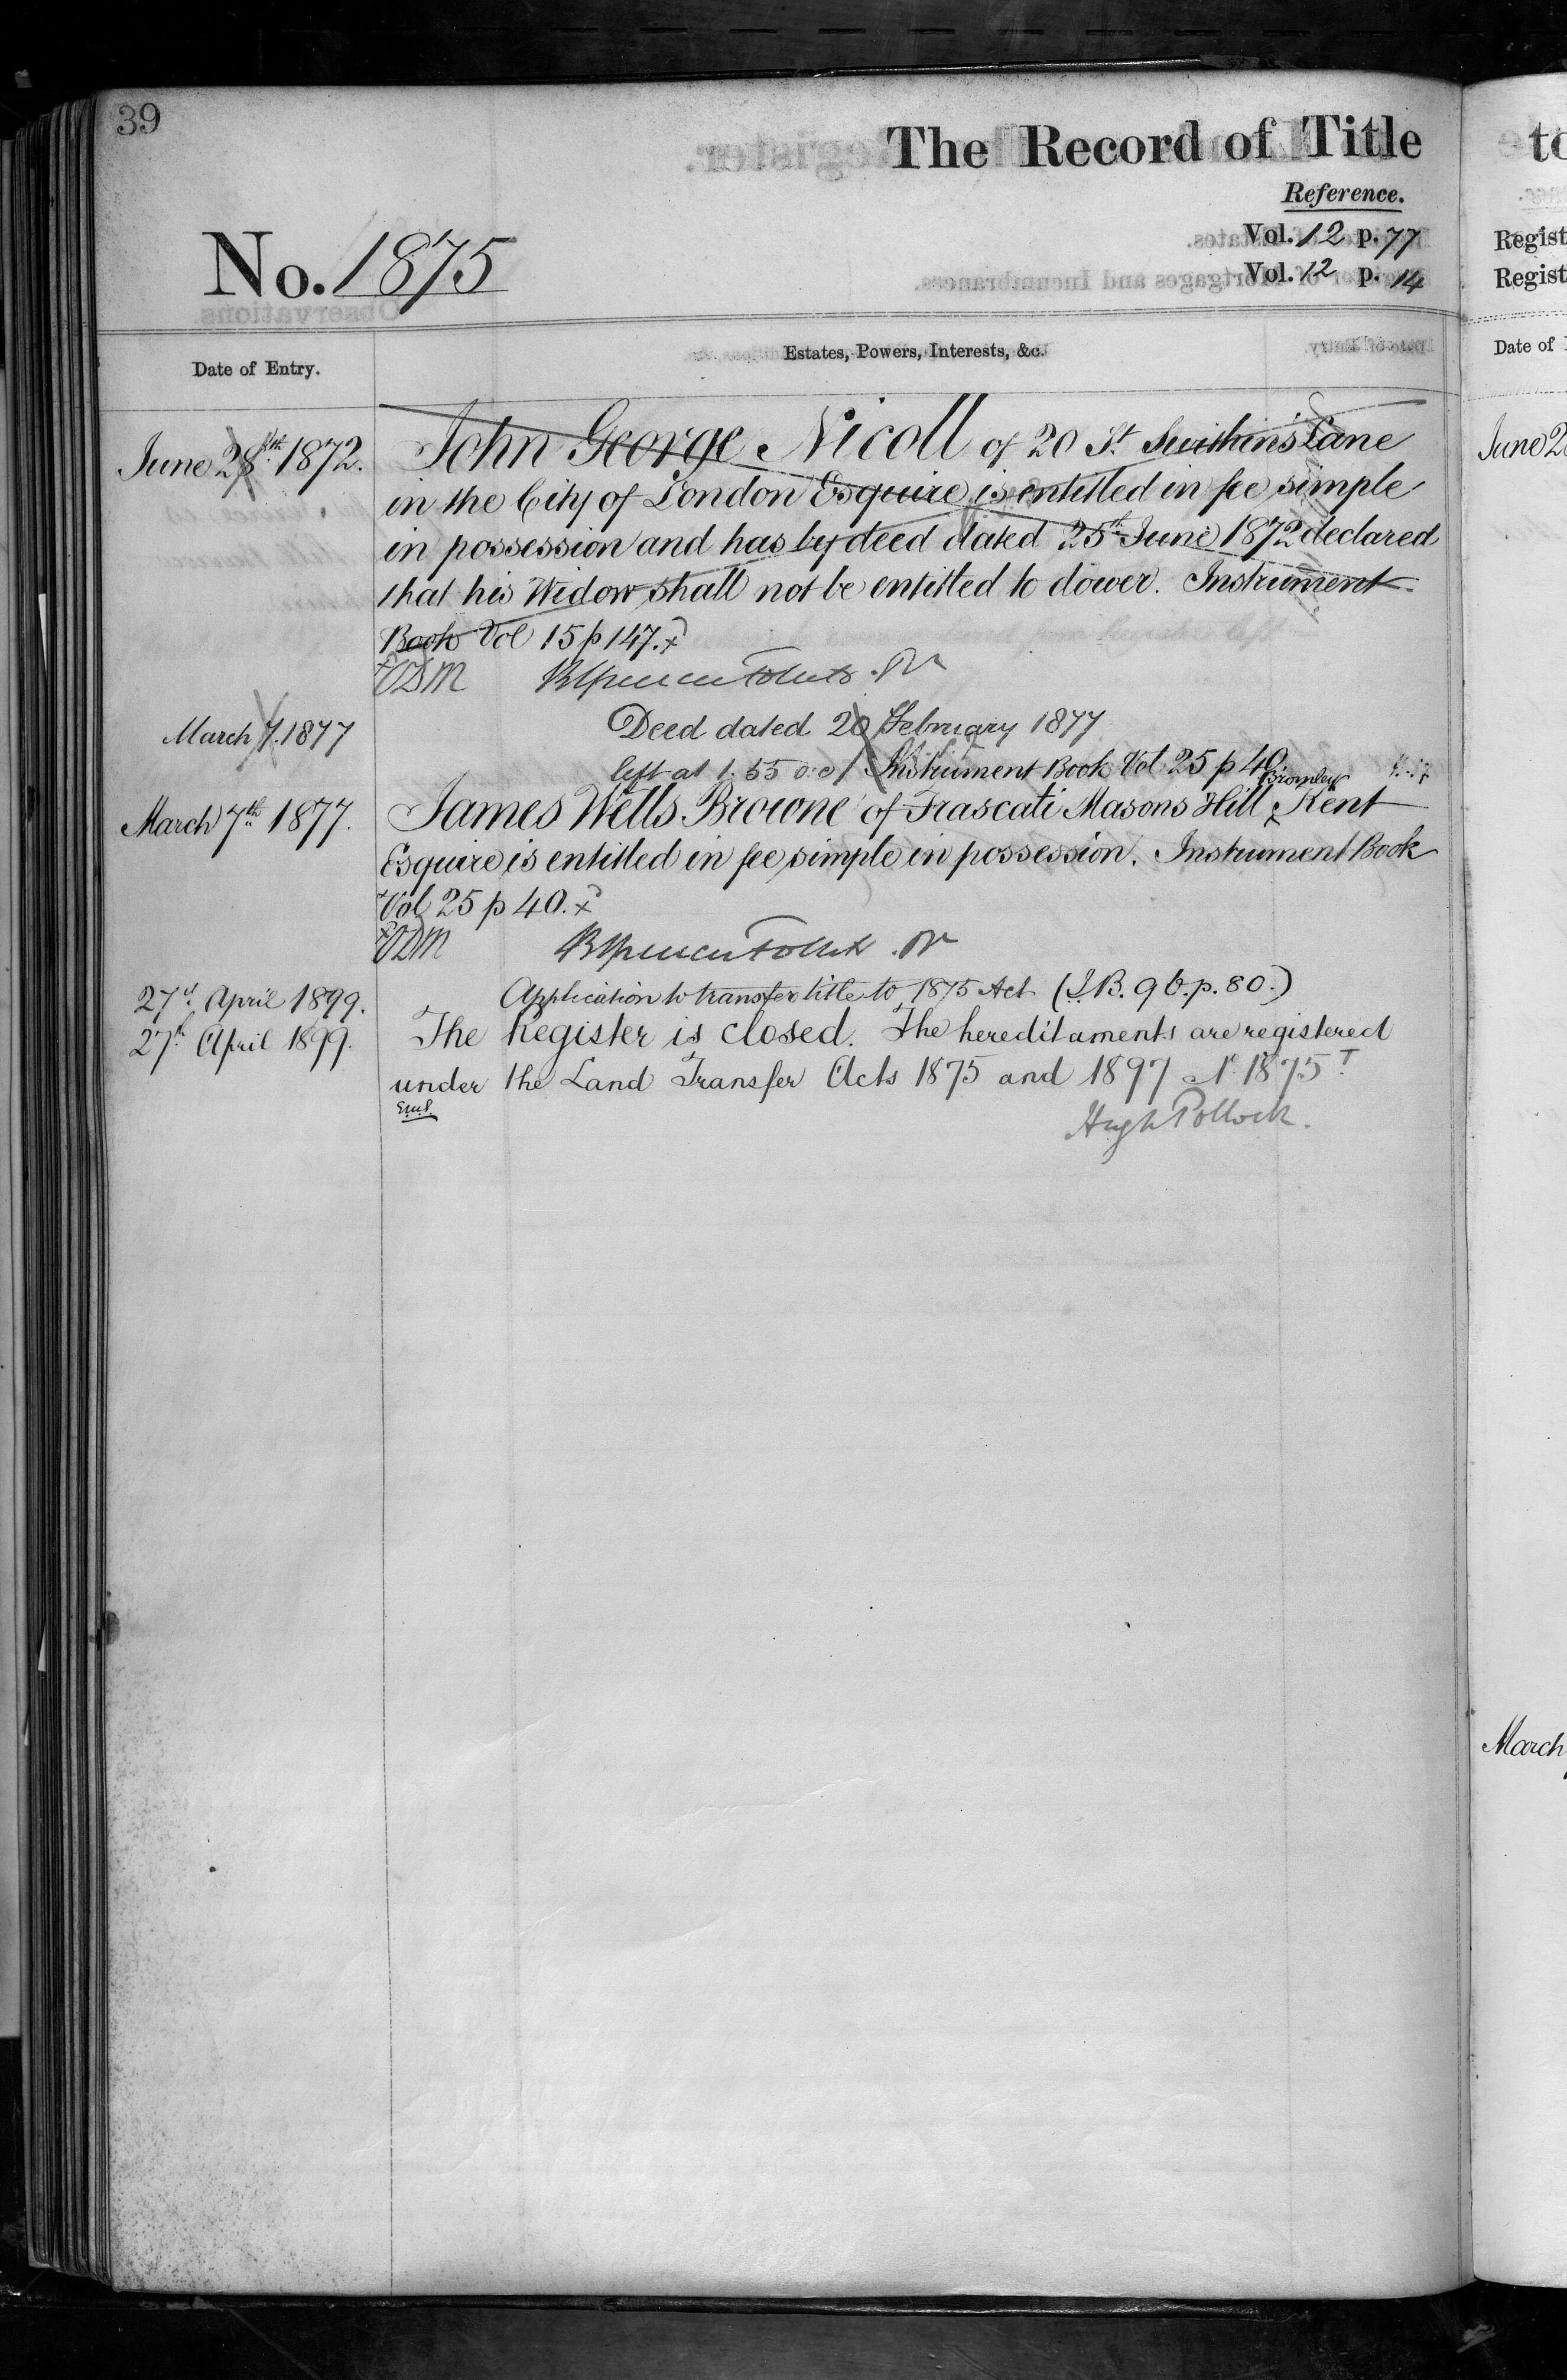 39
The Record of Title
Reference.
No. 1875
Vol. 12 p. 77
Vol. 12 p. 14
Date of Entry.
Estates, Powers, Interests, &c.
June 28th 1872.
John George Nicoll of 20 St. Swithin's Lane
in the City of London Esquire is entitled in fee simple
in possession and has by deed dated 25th June 1872 declared
that his Widow shall not be entitled to dower. Instrument
Book Vol 15 p 147. x
March 7. 1877
Deed dated 20 February 1877
left at 1.55 Instrument Book Vol 25 p 40
March 7th 1877.
James Wells Browne of Frascati Masons Hill Bromley Kent
Esquire is entitled in fee simple in possession. Instrument Book
Vol 25 p 40. x
27th April 1899.
Application to transfer title to 1875 Act (I.B. 96. p. 80.)
27th April 1899.
The Register is closed. The hereditaments are registered
under the Land Transfer Acts 1875 and 1897 No 1875T
Hugh Pollock.
to
Regist
Regist
Date of
June 2
March